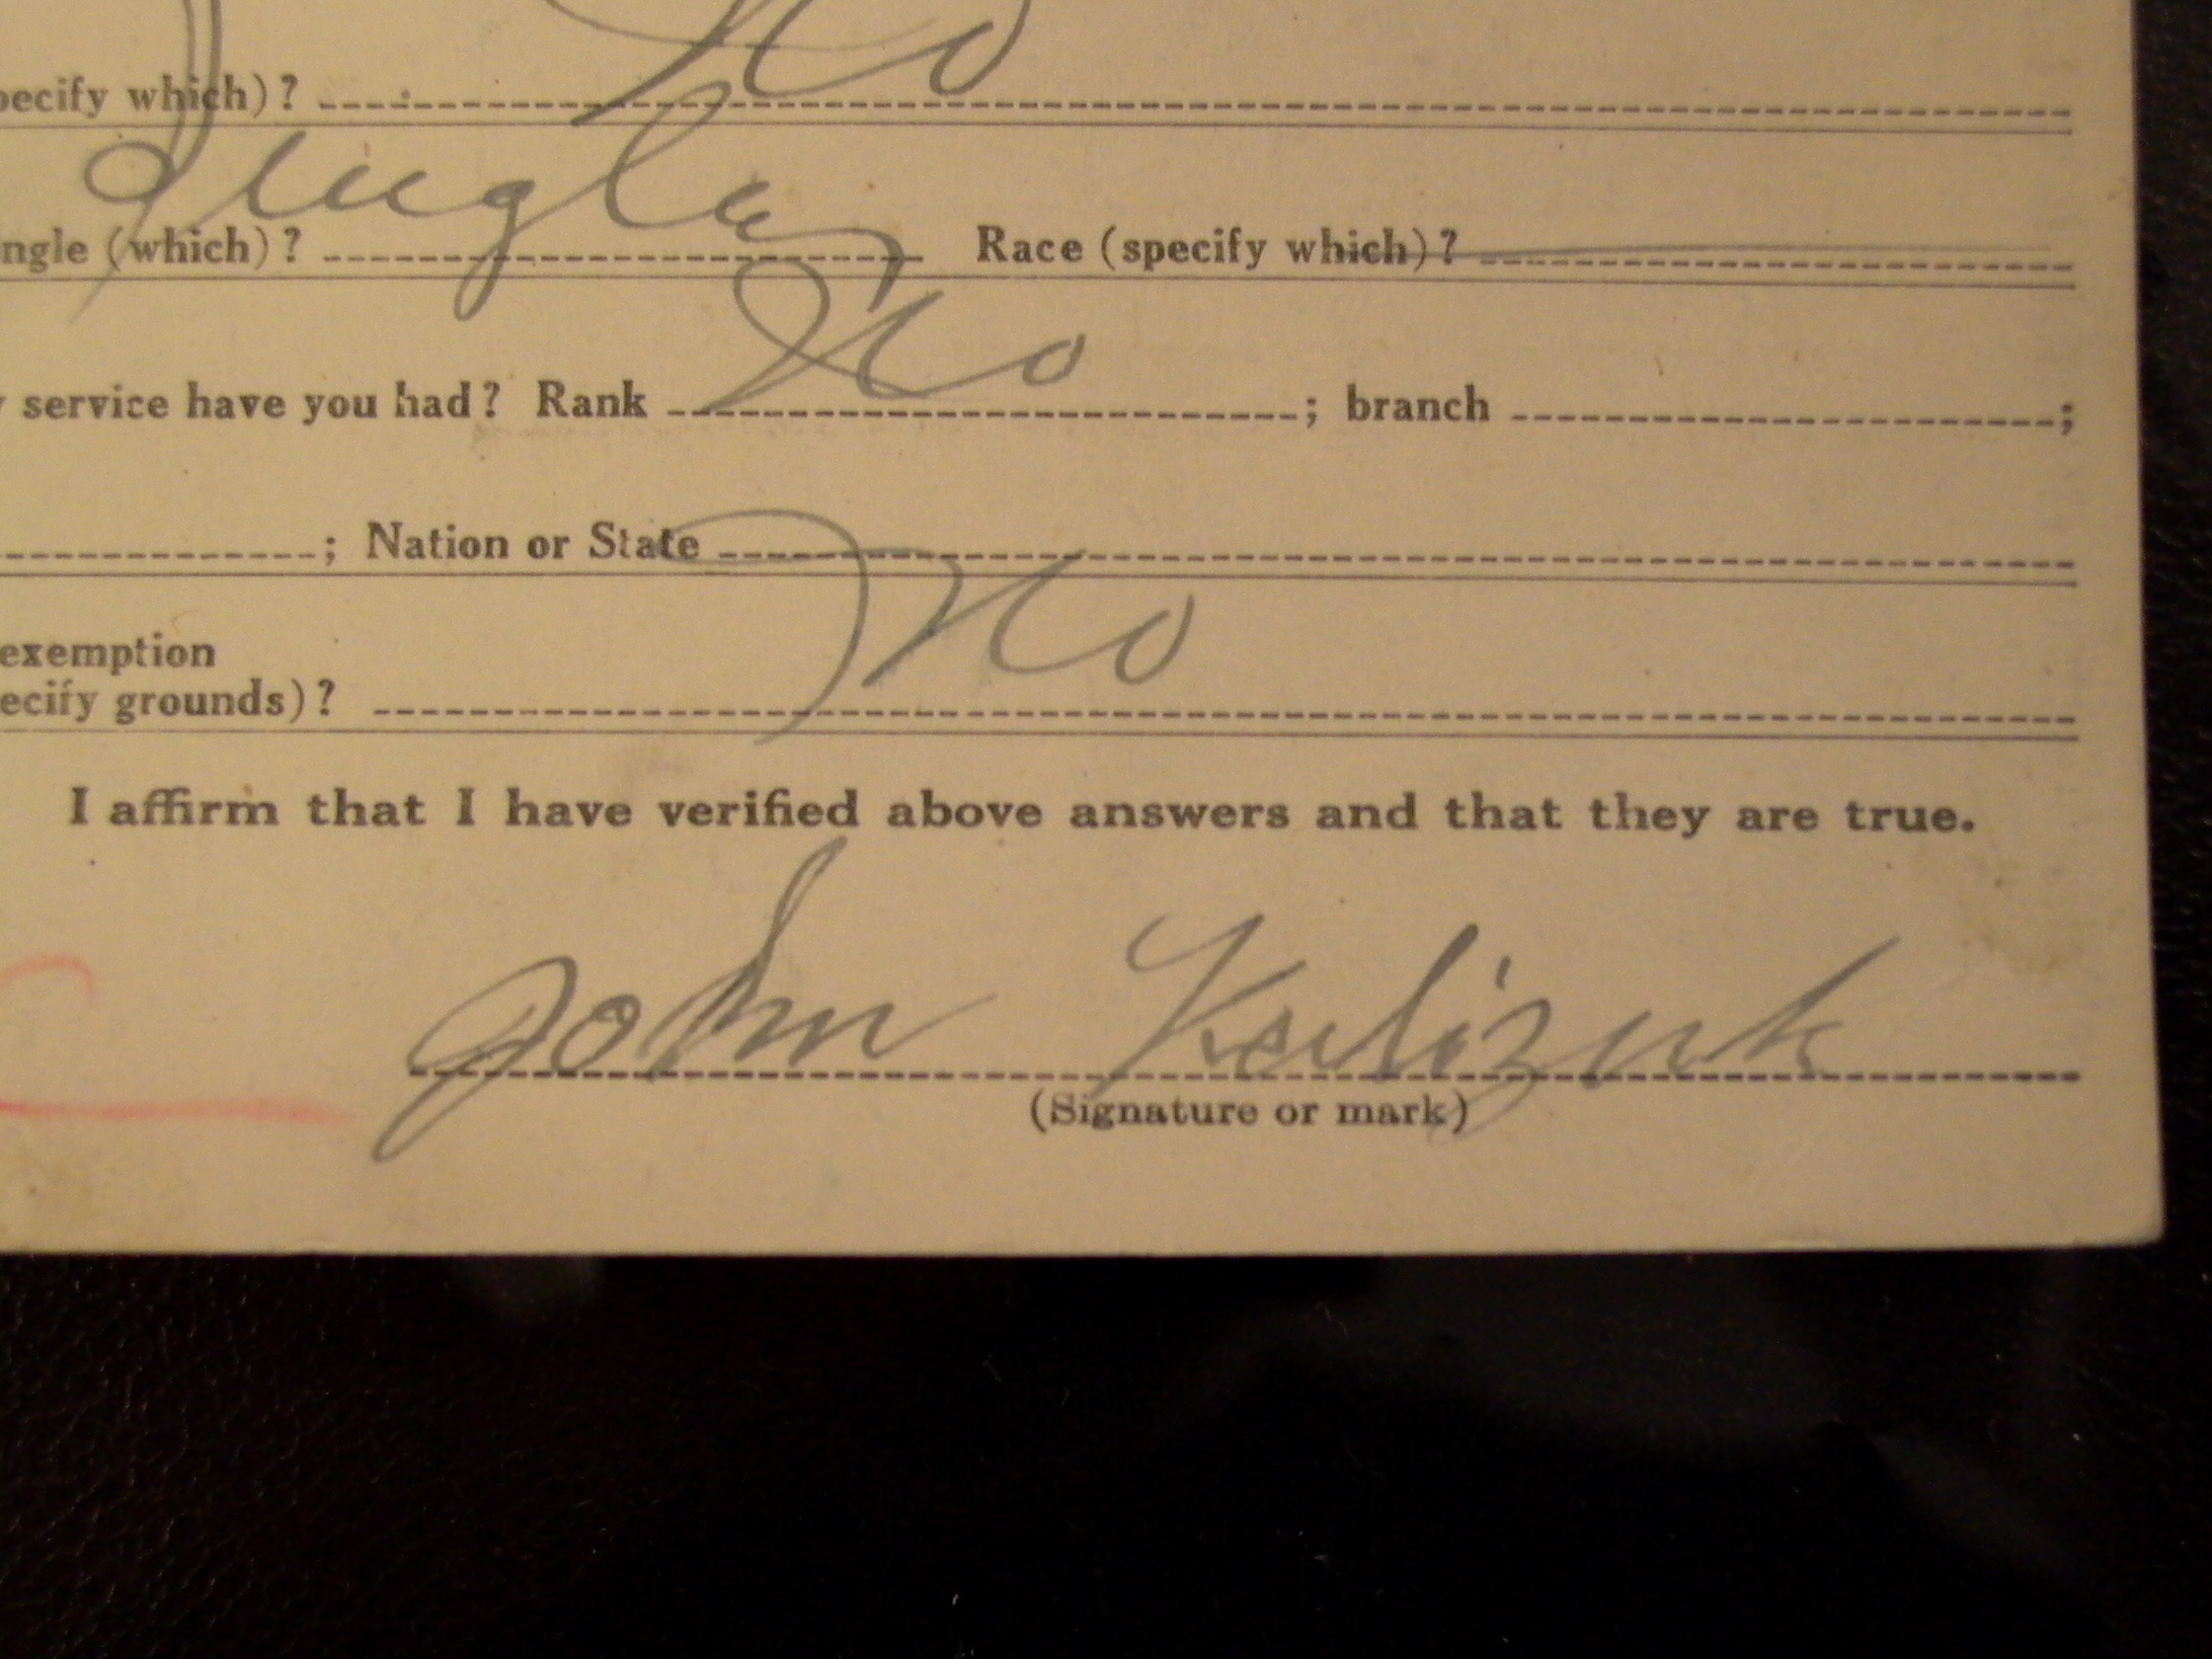 pecify which)? No
ngle (which)? Single Race (specify which)?
service have you had? Rank No ; branch ;
; Nation or State
exemption
ecify grounds)? No
I affirm that I have verified above answers and that they are true.
John
(Signature or mark)